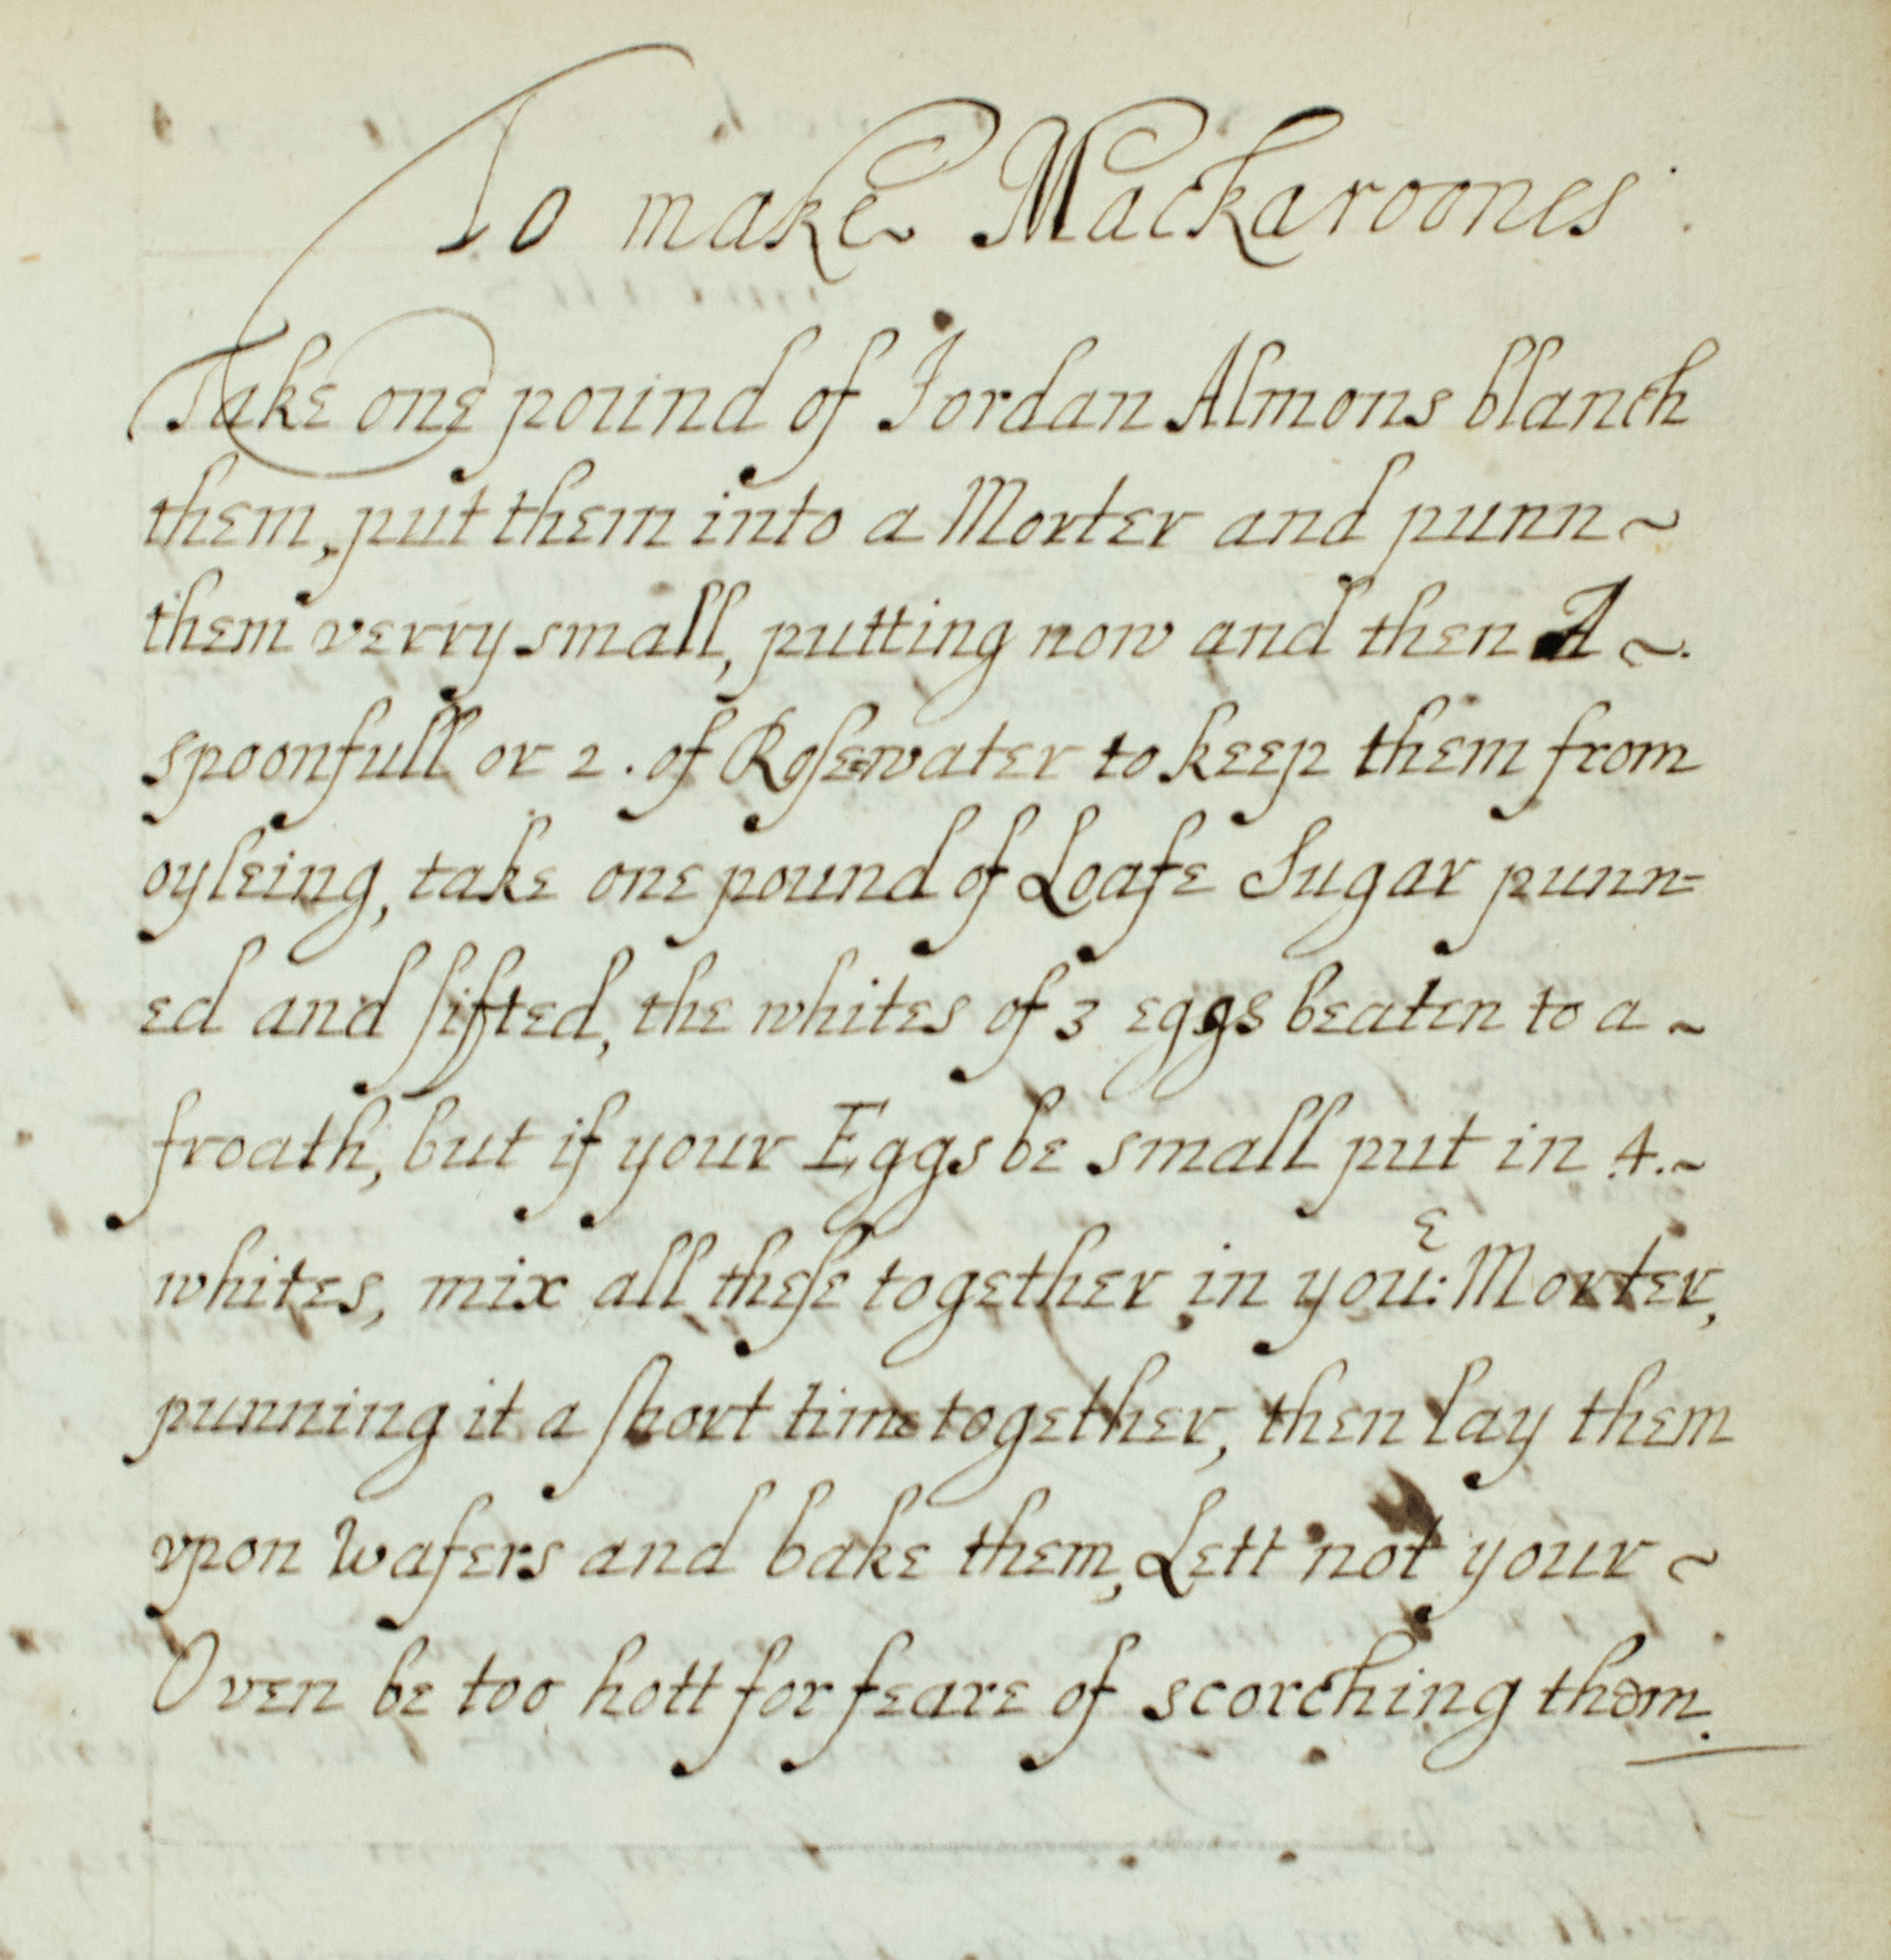 To make Mackaroones.
Take one pound of Jordan Almons blanch
them, put them into a Morter and punn ~
them verry small, putting now and then A ~.
spoonfull or 2. of Rosewater to keep them from
oyleing, take one pound of Loafe Sugar punn=
ed and sifted, the whites of 3 eggs beaten to a ~
froath, but if your Eggs be small put in 4. ~
whites, mix all these together in you:ᵋ Morter,
punning it a short time together, then lay them
vpon wafers and bake them, Lett not your ~
Oven be too hott for feare of scorching them.